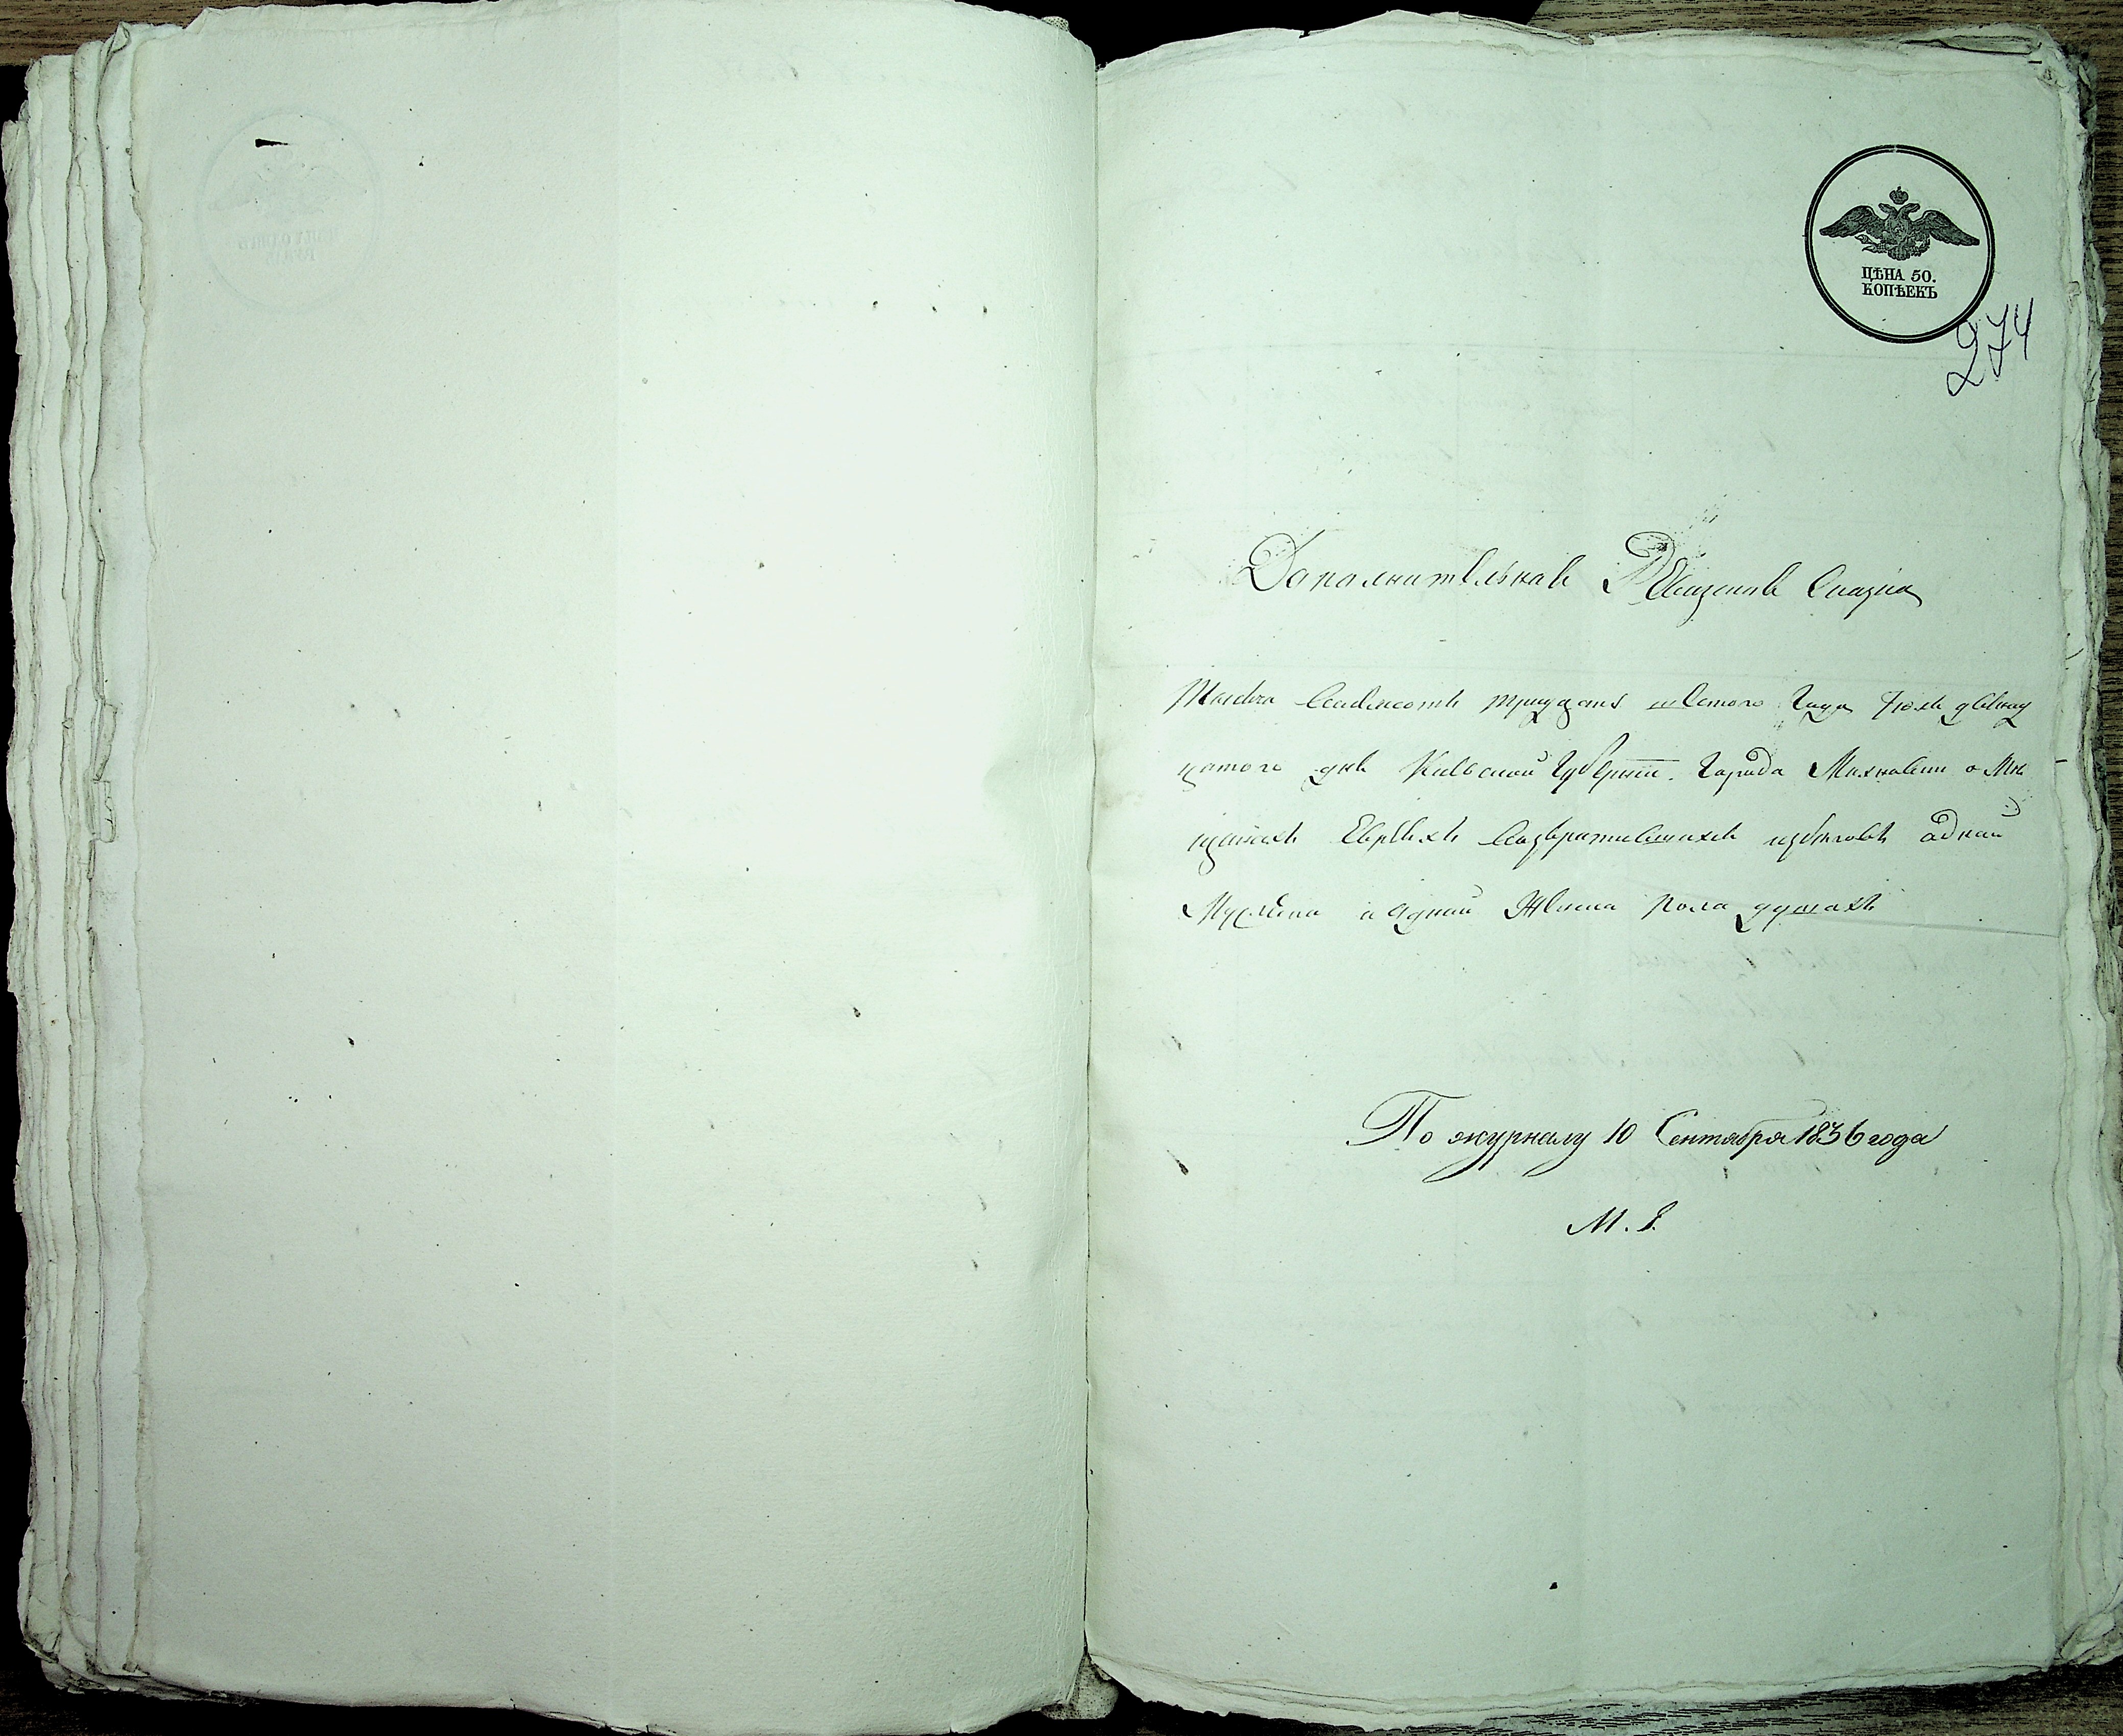 ЦѢНА 50.
КОПѢЕКЪ
274
Дополнительная Ревизская Сказка
Тысяча восемсотъ тридцать шестого года Июля двенад
цатого дня Киевской Губернии. Города Махновки о Мѣ
щанахъ Евреяхъ возвратившихся избѣговъ одной
Мужеска и одной Женска пола душахъ
По журналу 10 Сентября 1836 года